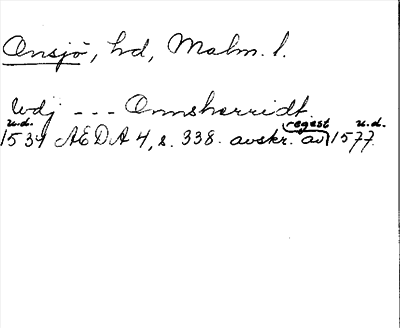 Onsjö, hd, Malm. l.
Wdj --- Onnsherridt
u.d. regest u.d.
1534 AEDA 4, s. 338. avskr. av 1577.